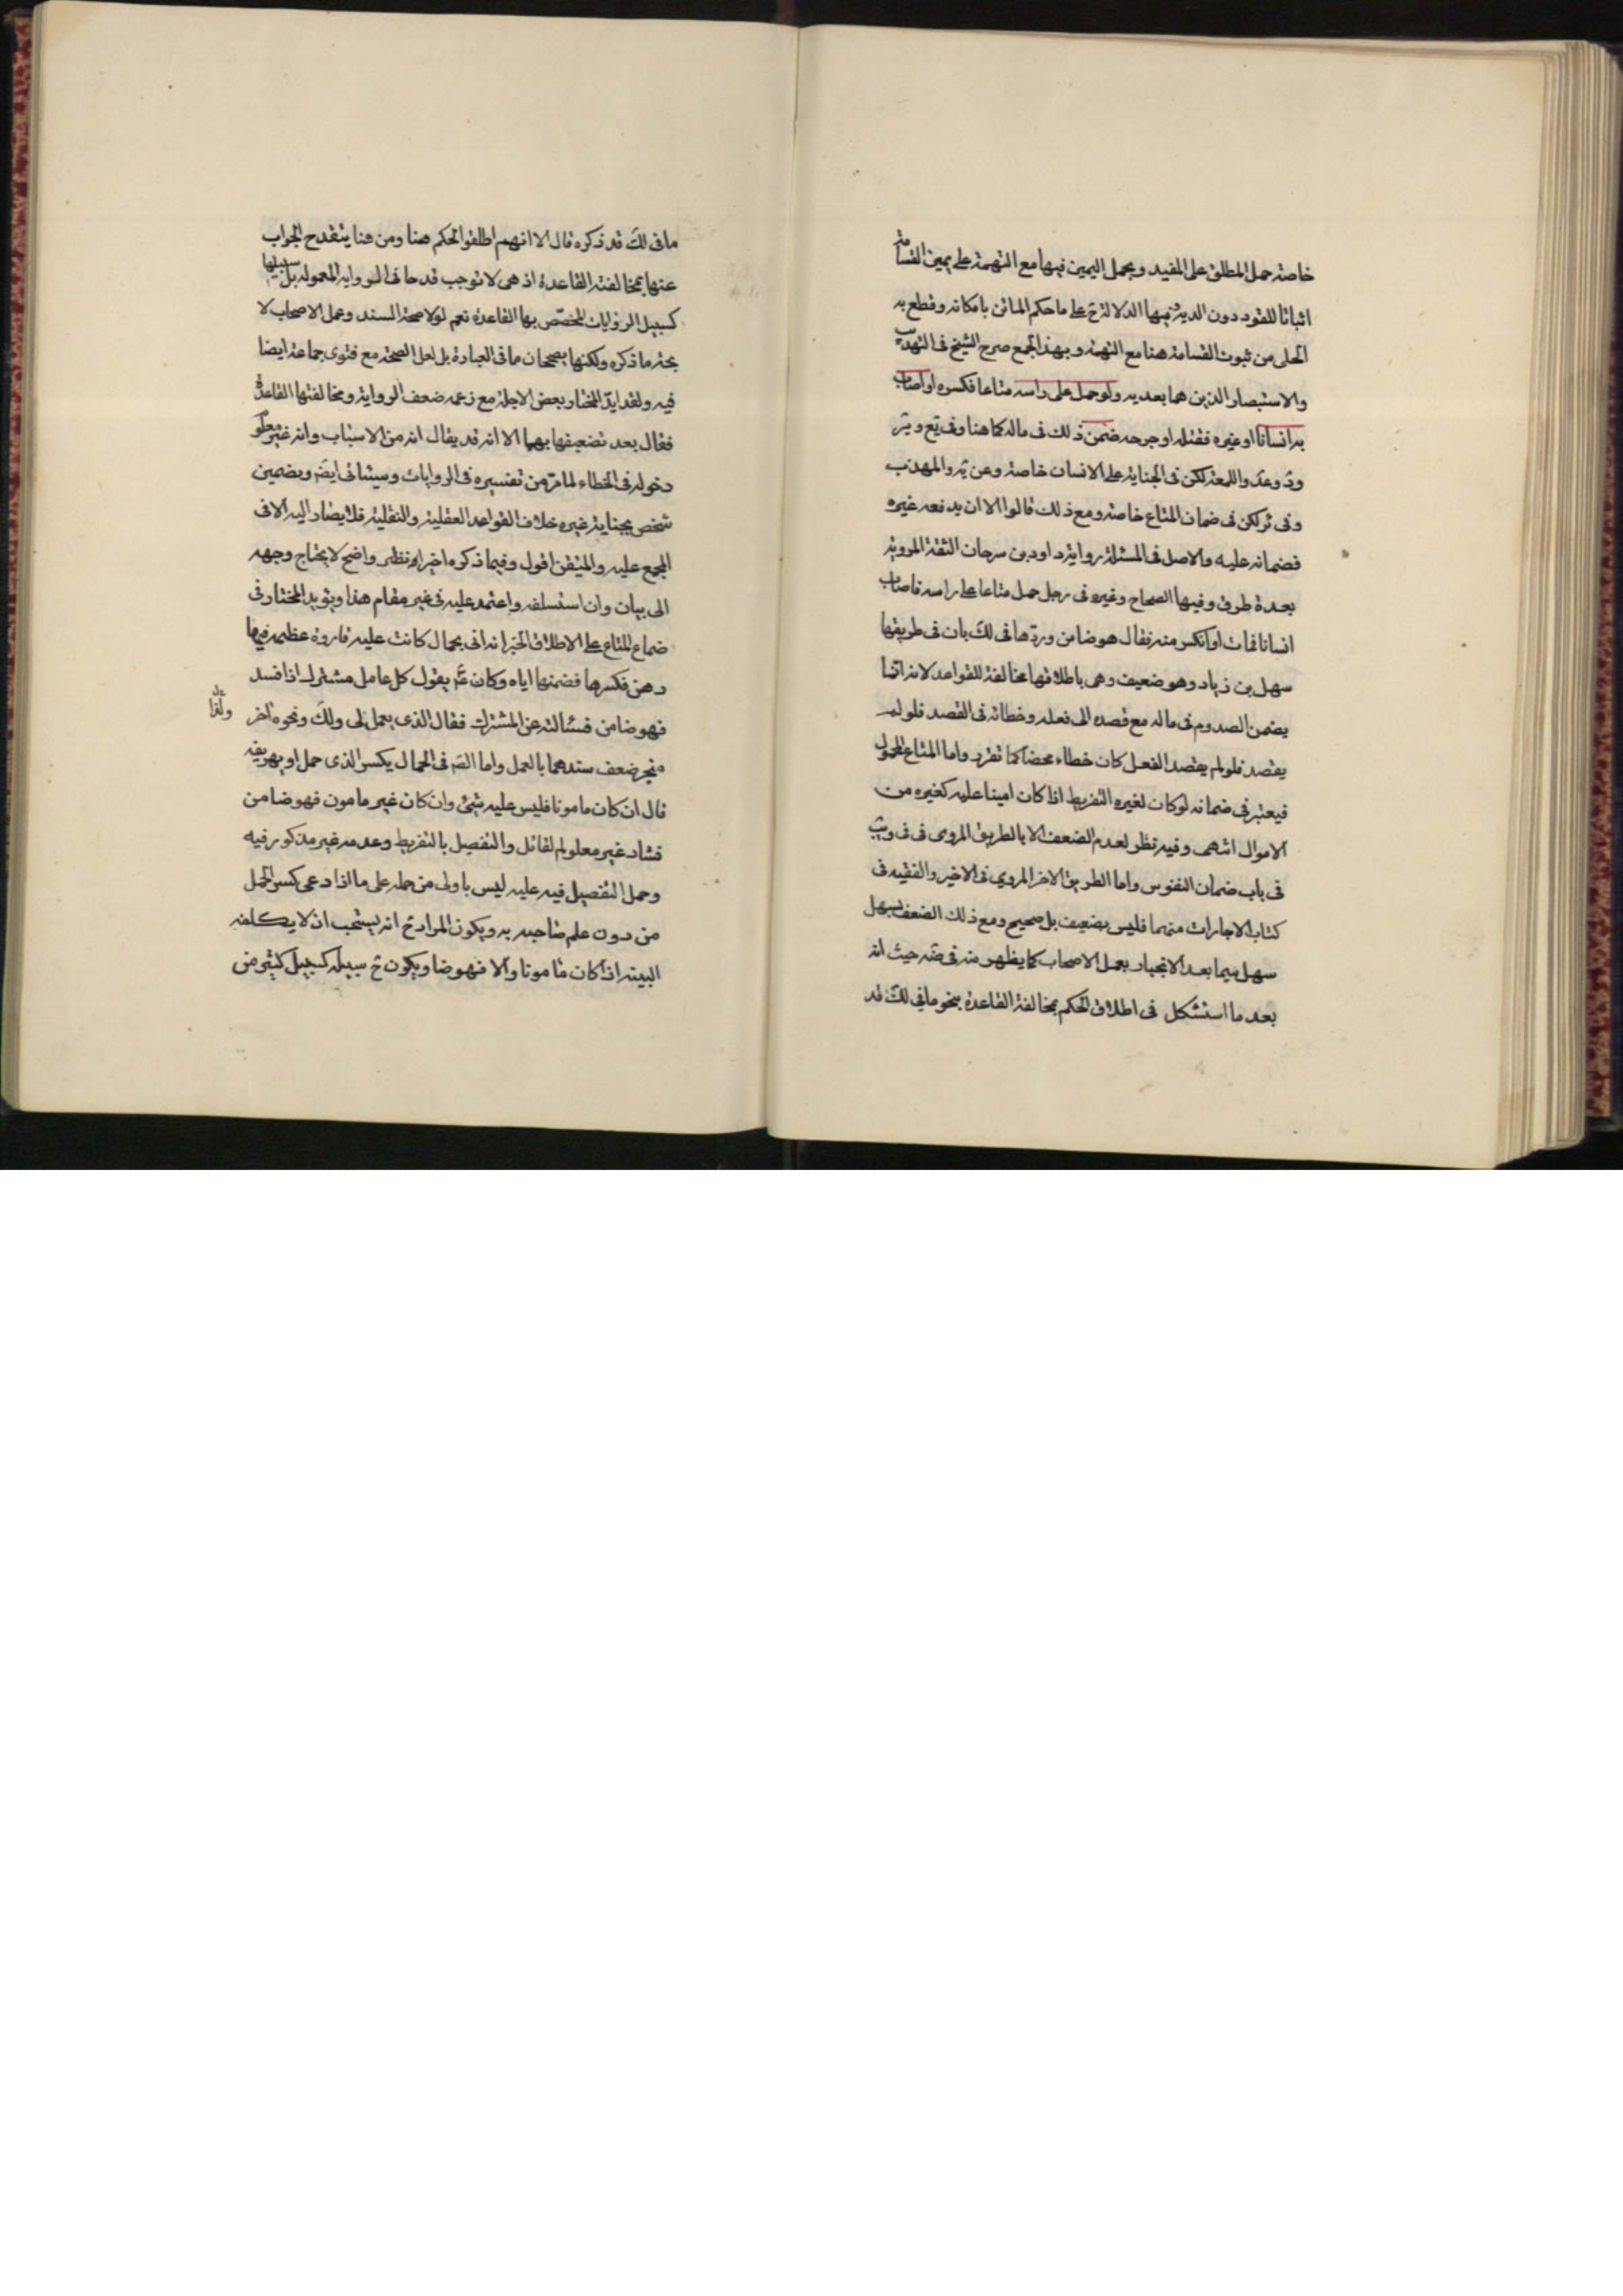 خاصة حمل المطلق على المقيد ويحمل اليمين فيها مع التهمة على يمين القسامة
اثباتا للقود دون الدية ففيها الدلالة ح على ما حكم الماتن بامكانه وقطع به
الحلى من ثبوت القسامة هنا مع التهمة وبهذا الجمع صرح الشيخ فى التهذيب
والاستبصار الذين هما بعد يه ولو حمل على راسه متاعا فكسره او اصاب
به انسانا او غيره فقتله او جرحه ضمن ذلك فى ماله كما هنا وفى يع و
و وعد واللمعة لكن فى الجناية على الانسان خاصة وعن يه والمهذب
وفى ئر لكن فى ضمان المتاع خاصة ومع ذلك قالوا الا ان يدفعه غيره
فضمانه عليه والاصل فى المسئلة رواية داود بن سرحان الثقة المروية
بعدة طرق وفيها الصحاح وغيره فى رجل حمل متاعا على راسه فاصاب
انسانا فمات او انكسر منه فقال هو ضامن وردها فى لك بان فى طريقها
سهل بن زياد وهو ضعيف وهى باطلاقها مخالفة للقواعد لانه انما
يضمن المصدوم فى ماله مع قصده الى فعله وخطائه فى القصد فلو لم
يقصد فلو لم يقصد الفعل كان خطاء محضا كما تقرر واما المتاع المحمول
فيعتبر فى ضمانه لو كان لغيره التفريط اذا كان امينا عليه كغيره من
الاموال انتهى وفيه نظر لعدم الضعف الا بالطريق المروى فى فى ويب
فى باب ضمان النفوس واما الطريق الاخر المروى فى الاخير والفقيه فى
كتاب الاجارات منهما فليس بضعيف بل صحيح ومع ذلك الضعف بسهل
سهل سيما بعد الانجبار بعمل الاصحاب كما يظهر منه فى ضه حيث انه
بعد ما استشكل فى اطلاق الحكم بمخالفة القاعدة بنحو ما فى لك قد
ما فى لك قد ذكره قال الا انهم اطلقوا الحكم هنا ومن هنا ينقدح الجواب
عنها بمخالفته القاعدة اذ هى لا توجب قدحا فى الرواية المعمولة بل سبيلها
كسبيل الروايات المخصص بها القاعدة نعم لولا صحة السند وعمل الاصحاب لا
يجته ما ذكره ولكنها يصححان ما فى العبارة بل لعل الصحة مع فتوى جماعة ايضا
فيه ولقد ايد المختار بعض الاجلة مع زعمه ضعف الرواية ومخالفتها القاعدة
فقال بعد تضعيفها بهما الا انه قد يقال انه من الاسباب وانه غير معلوم
دخوله فى الخطاء لما مر من تفسيره فى الروايات وسيئاتى ايض وبضمين
شخص بجناية غيره خلاف القواعد العقلية والنقلية فلا يصار اليه الا فى
المجمع عليه والمتيقن اقول وفيما ذكره اخيرا نظر واضح لا يحتاج وجهه
الى بيان وان استسلفه واعتمد عليه فى غير مقام هذا ويؤيد المختار فى
ضماع المتاع على الاطلاق الخبر انه اتى بحمال كانت عليه قارورة عظيمة فيها
دهن فكسرها فضمنها اياه وكان ع يقول كل عامل مشترك اذا فسد
فهو ضامن فسئالته عن المشترك فقال الذى يعمل لى ولك ونحوه اخر
منجبر ضعف سندهما بالعمل واما الص فى الحمال يكسر الذى حمل او يهريقه
قال ان كان مامونا فليس عليه شئ وان كان غير مامون فهو ضامن
فشاذ غير معلوم القائل والتفصيل بالتفريط وعدمه غير مذكور فيه
وحمل التفصيل فيه عليه ليس باولى من حمله على ما اذا دعى كسر الحمل
من دون علم صاحبه به ويكون المراد ح انه يستحب ان لا يكلفه
البينة اذا كان مامونا والا فهو ضا ويكون ح سبيله كسبيل كثير من